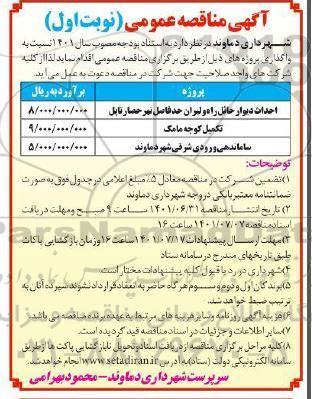 آگهی مناقصه عمومی (نوبت اول)
شهرداری دماوند در نظر دارد به استناد بودجه مصوب سال ۱۴۰۱ نسبت به
واگذاری پروژه های ذیل از طریق برگزاری مناقصه عمومی اقدام نماید لذا از کلیه
شرکت های واجد صلاحیت جهت شرکت در مناقصه دعوت به عمل می آید.
پروژه برآورد به ریال
احداث دیوار حائل راه ولیران حدفاصل نهر حصار تا پل ۸/۰۰۰/۰۰۰/۰۰۰
تکمیل کوچه مامک ۹/۰۰۰/۰۰۰/۰۰۰
ساماندهی ورودی شرقی شهر دماوند ۵/۰۰۰/۰۰۰/۰۰۰
توضیحات:
۱)تضمین شرکت در مناقصه معادل ۵٪ مبلغ اعلامی در جدول فوق به صورت
ضمانتنامه معتبر بانکی در وجه شهرداری دماوند
۲) تاریخ انتشار مناقصه ۱۴۰۱/۰۶/۳۱ ساعت ۹ صبح و مهلت دریافت
اسناد مناقصه ۱۴۰۱/۰۷/۰۷ ساعت ۱۶
۳)مهلت ارسال پیشنهادات ۱۴۰۱/۰۷/۱۷ ساعت ۱۶ و زمان بازگشایی پاکات
طبق تاریخهای مندرج در سامانه ستاد
۴)شهرداری در رد یا قبول کلیه پیشنهادات مختار است.
۵)برندگان اول و دوم و سوم هرگاه حاضر به انعقاد قرارداد نشوند سپرده آنان به
ترتیب ضبط خواهد شد.
۶)هزینه آگهی روزنامه و سایر هزینه های مرتبط به عهده برنده مناقصه می باشد.
۷)سایر اطلاعات و جزئیات در اسناد مناقصه قید گردیده است.
۸)کلیه مراحل برگزاری مناقصه از دریافت اسناد و تحویل تا بازگشایی پاکت ها از طریق
سامانه الکترونیکی دولت (ستاد) به آدرس www.setadiran.ir انجام خواهد شد.
سرپرست شهرداری دماوند - محمود بهرامی